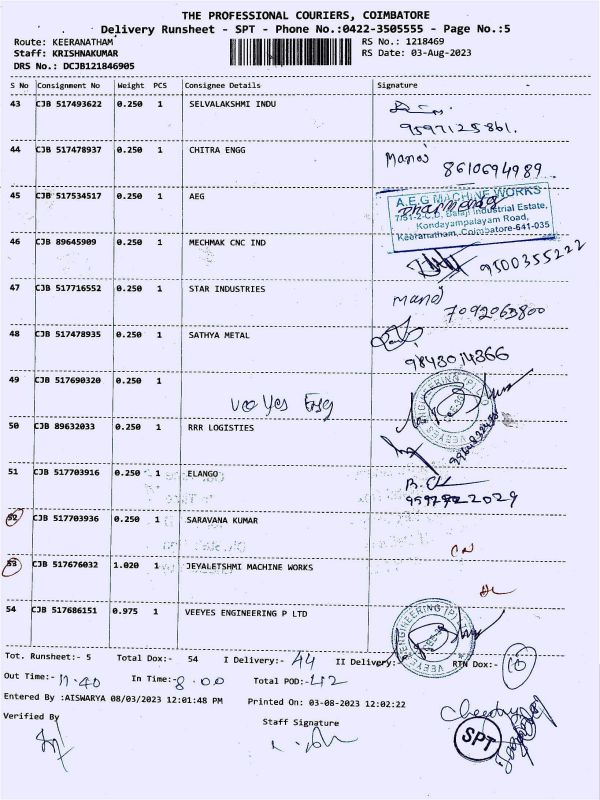 THE PROFESSIONAL COURIERS, COIMBATORE
Delivery Runsheet - SPT - Phone No.:0422-3505555 - Page No.:5
Route: KEERANATHAM
RS No.: 1218469
Staff: KRISHNAKUMAR
RS Date: 03-Aug-2023
DRS No.: DCJB121846905
S No Consignment No Weight PCS Consignee Details Signature
43 CJB 517493622 0.250 1 SELVALAKSHMI INDU
9597125861.
44 CJB 517478937 0.250 1 CHITRA ENGG Manoj
8610694989
45 CJB 517534517 0.250 1 AEG
A.E.G MACHINE WORKS
7/51-2-C,D, Balaji Industrial Estate,
Kondayampalayam Road,
Keeranatham, Coimbatore-641-035
46 CJB 89645909 0.250 1 MECHMAK CNC IND
9500355222
47 CJB 517716552 0.250 1 STAR INDUSTRIES Manoj
7092063800
48 CJB 517478935 0.250 1 SATHYA METAL
9843014366
49 CJB 517690320 0.250 1
vee yes Eng
VEEYES ENGINEERING (P) LTD
50 CJB 89632033 0.250 1 RRR LOGISTIES
51 CJB 517703916 0.250 1 ELANGO
52 CJB 517703936 0.250 1 SARAVANA KUMAR
53 CJB 517676032 1.020 1 JEYALETSHMI MACHINE WORKS
DL
54 CJB 517686151 0.975 1 VEEYES ENGINEERING P LTD
VEEYES ENGINEERING (P) LTD
Tot. Runsheet:- 5 Total Dox:- 54 I Delivery:- 44 II Delivery:- RTN Dox:- 10
Out Time:- 11.40 In Time:- 8.00 Total POD:- 42
Entered By :AISWARYA 08/03/2023 12:01:48 PM Printed On: 03-08-2023 12:02:22
Verified By Staff Signature
SPT